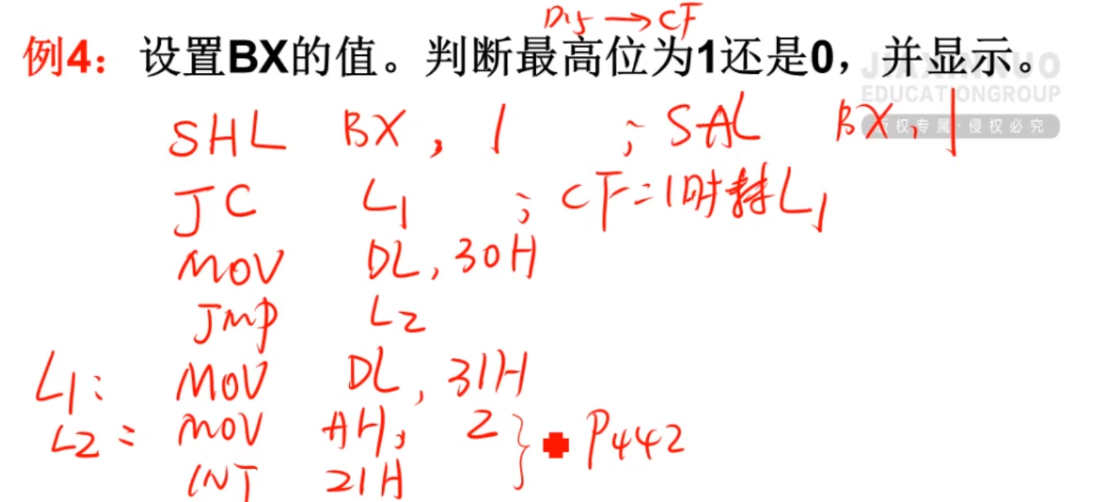 D15 → CF
例4：设置BX的值。判断最高位为1还是0，并显示。
EDUCATIONGROUP
版权专属·侵权必究
SHL BX, 1 ; SAL BX, 1
JC L1 ; CF=1时转L1
MOV DL, 30H
JMP L2
L1: MOV DL, 31H
L2: MOV AH, 2 } P442
INT 21H